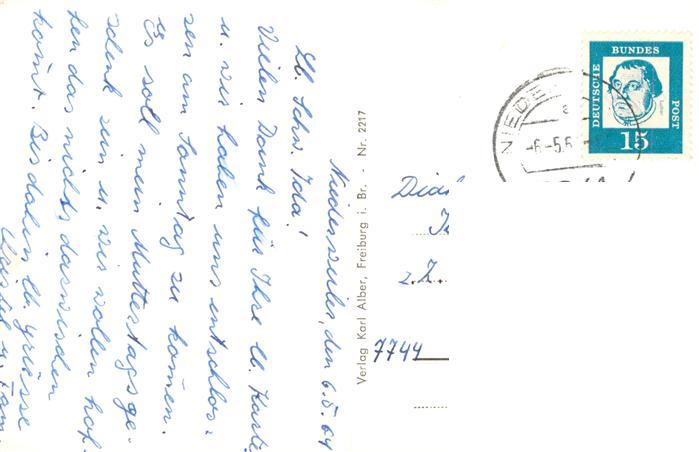 Niederweiler, den 6.5.64
Lb. Schw. Ida!
Vielen Dank für Ihre lb. Karte
u. wir haben uns entschlos-
sen am Sonntag zu kommen.
Es soll mein Muttertagsge-
schenk sein u. wir wollen hof-
fen das nichts dazwischen
komt. Bis dahin lb. Grüsse
u. Fam.
Verlag Karl Alber, Freiburg i. Br. - Nr. 2217
z. Z.
7744
NIEDE
-6.-5.6
DEUTSCHE
BUNDES
POST
15